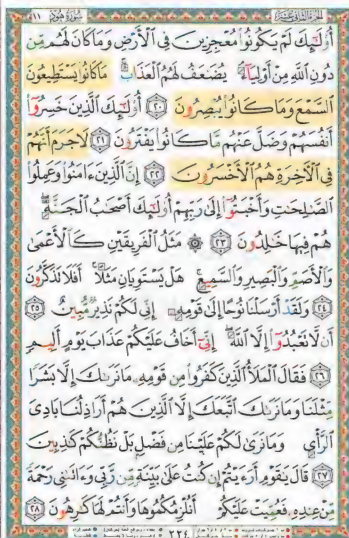 الجزء الثاني عشر ١١ سورة هود
أُو۟لَـٰٓئِكَ لَمْ يَكُونُوا۟ مُعْجِزِينَ فِى ٱلْأَرْضِ وَمَا كَانَ لَهُم مِّن
دُونِ ٱللَّهِ مِنْ أَوْلِيَآءَ ۘ يُضَـٰعَفُ لَهُمُ ٱلْعَذَابُ ۚ مَا كَانُوا۟ يَسْتَطِيعُونَ
ٱلسَّمْعَ وَمَا كَانُوا۟ يُبْصِرُونَ ٢٠ أُو۟لَـٰٓئِكَ ٱلَّذِينَ خَسِرُوٓا۟
أَنفُسَهُمْ وَضَلَّ عَنْهُم مَّا كَانُوا۟ يَفْتَرُونَ ٢١ لَا جَرَمَ أَنَّهُمْ
فِى ٱلْـَٔاخِرَةِ هُمُ ٱلْأَخْسَرُونَ ٢٢ إِنَّ ٱلَّذِينَ ءَامَنُوا۟ وَعَمِلُوا۟
ٱلصَّـٰلِحَـٰتِ وَأَخْبَتُوٓا۟ إِلَىٰ رَبِّهِمْ أُو۟لَـٰٓئِكَ أَصْحَـٰبُ ٱلْجَنَّةِ ۖ
هُمْ فِيهَا خَـٰلِدُونَ ٢٣ ۞ مَثَلُ ٱلْفَرِيقَيْنِ كَٱلْأَعْمَىٰ
وَٱلْأَصَمِّ وَٱلْبَصِيرِ وَٱلسَّمِيعِ ۚ هَلْ يَسْتَوِيَانِ مَثَلًا ۚ أَفَلَا تَذَكَّرُونَ
٢٤ وَلَقَدْ أَرْسَلْنَا نُوحًا إِلَىٰ قَوْمِهِۦٓ إِنِّى لَكُمْ نَذِيرٌ مُّبِينٌ ٢٥
أَن لَّا تَعْبُدُوٓا۟ إِلَّا ٱللَّهَ ۖ إِنِّىٓ أَخَافُ عَلَيْكُمْ عَذَابَ يَوْمٍ أَلِيمٍ
٢٦ فَقَالَ ٱلْمَلَأُ ٱلَّذِينَ كَفَرُوا۟ مِن قَوْمِهِۦ مَا نَرَىٰكَ إِلَّا بَشَرًا
مِّثْلَنَا وَمَا نَرَىٰكَ ٱتَّبَعَكَ إِلَّا ٱلَّذِينَ هُمْ أَرَاذِلُنَا بَادِىَ
ٱلرَّأْىِ وَمَا نَرَىٰ لَكُمْ عَلَيْنَا مِن فَضْلٍۭ بَلْ نَظُنُّكُمْ كَـٰذِبِينَ
٢٧ قَالَ يَـٰقَوْمِ أَرَءَيْتُمْ إِن كُنتُ عَلَىٰ بَيِّنَةٍ مِّن رَّبِّى وَءَاتَىٰنِى رَحْمَةً
مِّنْ عِندِهِۦ فَعُمِّيَتْ عَلَيْكُمْ أَنُلْزِمُكُمُوهَا وَأَنتُمْ لَهَا كَـٰرِهُونَ ٢٨
٢٢٤